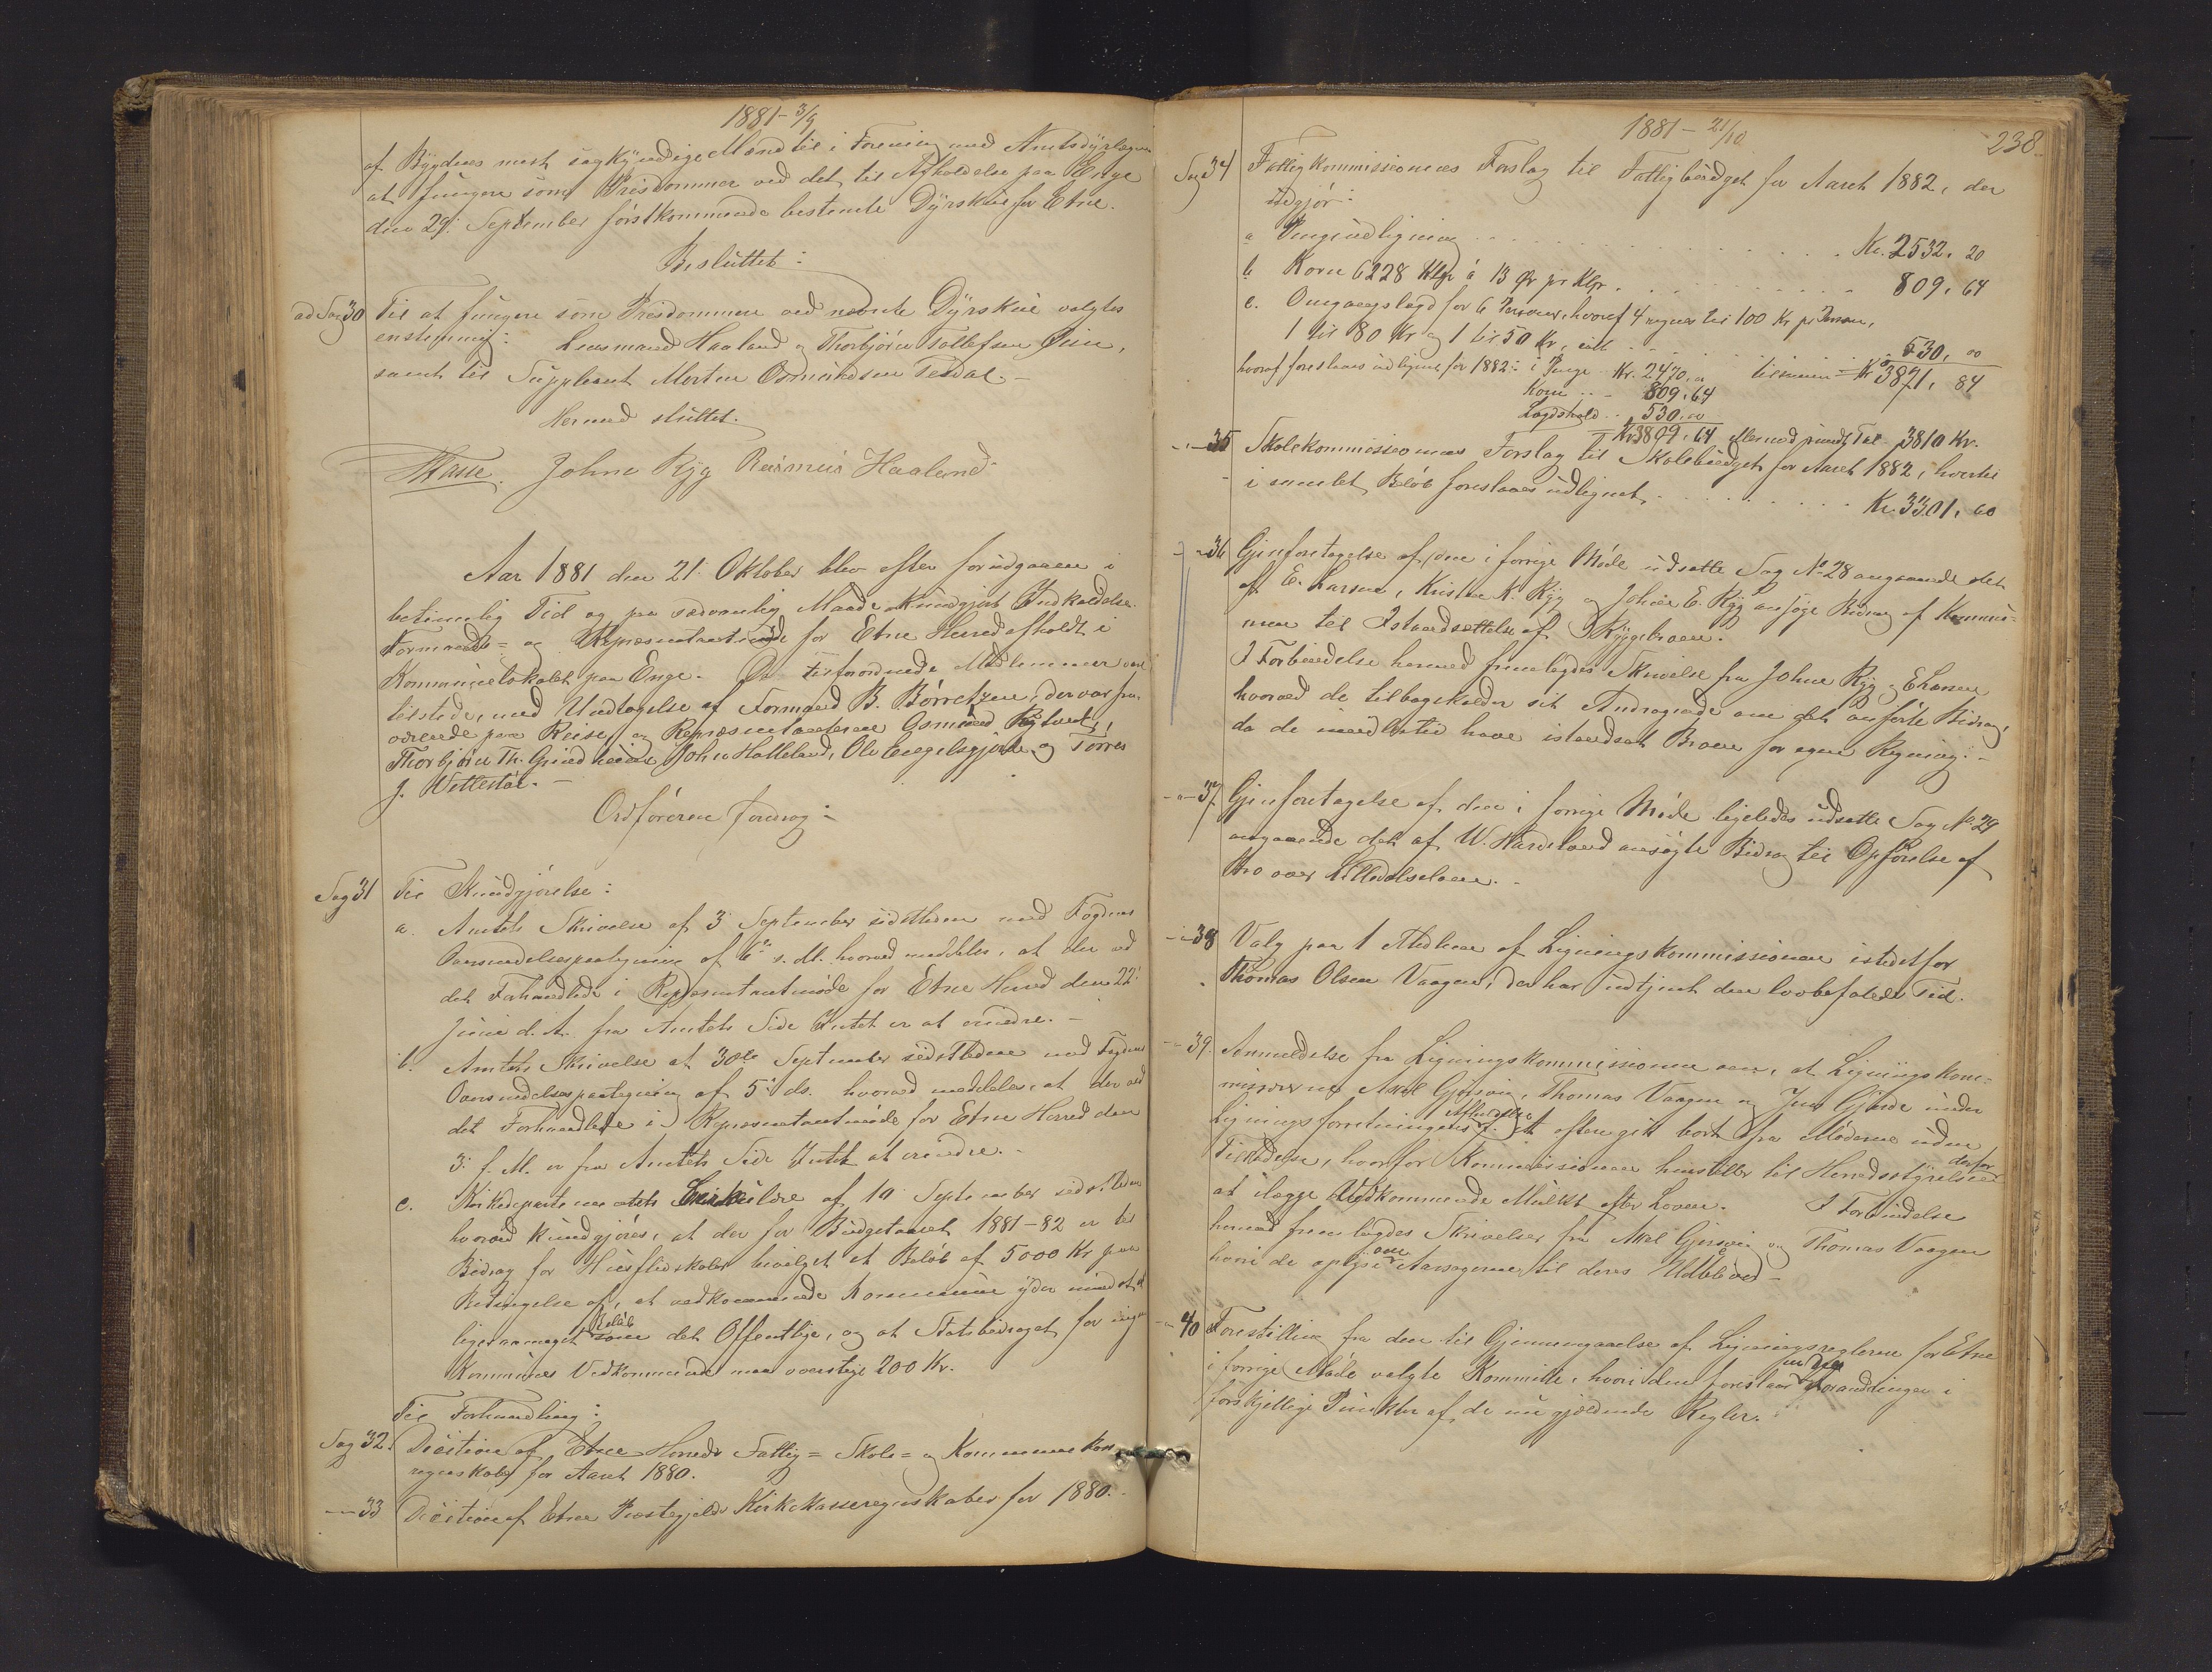 1881 - 3/9
af Bygdens mest sagkyndige Mænd til i Forening med Amtsdyrlægen
at fungere som Prisdommer ved det til Afholdelse paa Enge
den 29. September førstkommende bestemte Dyrskue for Etne.
Besluttet:
ad Sag 30 Til at fungere som Prisdommere ved nævnte Dyrskue valgtes
enstemmig: Lensmand Haaland og Thorbjørn Tollefsen Øien,
samt til Suppleant Morten Osmundsen Tesdal. -
Hermed sluttet.
Johne Ryg Rasmus Haaland
Aar 1881 den 21. Oktober blev efter forudgaaen i
betimelig Tid og paa sædvanlig Maade kundgjort Indkaldelse
Formands- og Repræsentantmøde for Etne Herred afholdt i
Kommunelokalet paa Enge. De tilforordnede Medlemmer vare
tilstede, med Undtagelse af Formand B. Børretzen, der var fra-
værende paa Reise, og Repræsentanterne Osmund
Thorbjørn Th. Grindheim, John Halleland, Ole Engelsgjerde og Tørres
J. Vettestøl. -
Ordføreren foredrog:
Sag 31 Til Kundgjørelse:
a. Amtets Skrivelse af 3. September sidstleden med Fogdens
Oversendelsespaategning af 6te s. M. hvorved meddeles, at der ved
det Forhandlede i Repræsentantmøde for Etne Herred den 22.
Juni d. A. fra Amtets Side Intet er at erindre. -
b. Amtets Skrivelse af 30te September sidstleden med Fogdens
Oversendelsespaategning af 5. ds. hvorved meddeles, at der ved
det Forhandlede i Repræsentantmøde for Etne Herred den
3. f. M. er fra Amtets Side Intet at erindre. -
c. Kirkedepartementets Cirkulære af 10 September sidstleden
hvorved kundgjøres, at der for Budgetaaret 1881-82 er til
Bidrag for Husflidskoler bevilget et Beløb af 5000 Kr. paa
Betingelse af, at vedkommende Kommune yder mindst et
ligesaameget Beløb som det Offentlige, og at Statsbidraget for ingen
Kommunes Vedkommende maa overstige 200 Kr.
Til Forhandling:
Sag 32. Decision af Etne Herreds Fattig- Skole- og Kommunekasse-
regnskaber for Aaret 1880.
-"- 33 Decision af Etne Præstegjelds Kirkekasseregnskaber for 1880. -
1881 - 21/10
238.
Sag 34 Fattigkommissionens Forslag til Fattigbudget for Aaret 1882, der
udgjør:
a Pengeudligning . . . . . Kr. 2532. 20
b Korn 6228 Klgr à 13 Ør pr Klgr. . . . . 809. 64
c. Omgangslægd for 6 Personer, hvoraf 4 regnes til 100 Kr pr Person,
1 til 80 Kr og 1 til 50 Kr, ialt . . . . 530. 00
tilsammen Kr 3871. 84
hvoraf foreslaaes udlignet for 1882: i Penge Kr. 2470. 00
Korn . . - 809. 64
Lægdshold . . 530. 00
Kr 3809. 64 eller med rundt Tal 3810 Kr.
-"- 35 Skolekommissionens Forslag til Skolebudget for Aaret 1882, hvortil
i samlet Beløb foreslaaes udlignet . . . . Kr. 3301. 60
-"- 36 Gjenforetagelse af den i forrige Møde udsatte Sag No 28 angaaende det
af E. Larsen, Kristen K. Ryg og Johne E. Ryg ansøgte Bidrag af Kommu-
nen til Istandsættelse af Ryggebroen.
I Forbindelse hermed fremlagdes Skrivelse fra Johne Ryg og E. Larsen
hvorved de tilbagekalder sit Andragende om det anførte Bidrag,
da de imidlertid have istandsat Broen for egen Regning. -
-"- 37. Gjenforetagelse af den i forrige Møde ligeledes udsatte Sag No. 29
angaaende det af W. Hardeland ansøgte Bidrag til Opførelse af
Bro over Litledalselven. -
-"- 38 Valg paa 1 Medlem af Ligningskommissionen istedetfor
Thomas Olsen Vaagen, der har udtjent den lovbefalede Tid.
-"- 39. Anmeldelse fra Ligningskommissionen om, at Ligningskom-
missærerne Axel Gjersvig, Thomas Vaagen og Jens Gjerde under
Ligningsforretningens Afholdelse f. A. oftere gik bort fra Møderne uden
Tilladelse, hvorfor Kommissionen henstiller til Herredsstyrelsen derfor
at ilægge Vedkommende Mulkt efter Loven. I Forbindelse
hermed fremlagdes Skrivelser fra Axel Gjersvig og Thomas Vaagen
hvori de oplyse om Aarsagerne til deres Udebliven -
-"- 40 Forestilling fra den til Gjennemgaaelse af Ligningsreglerne for Etne
i forrige Møde valgte Kommitte, hvori den foreslaar en Del Forandringer i
forskjellige Punkter af de nu gjældende Regler. -